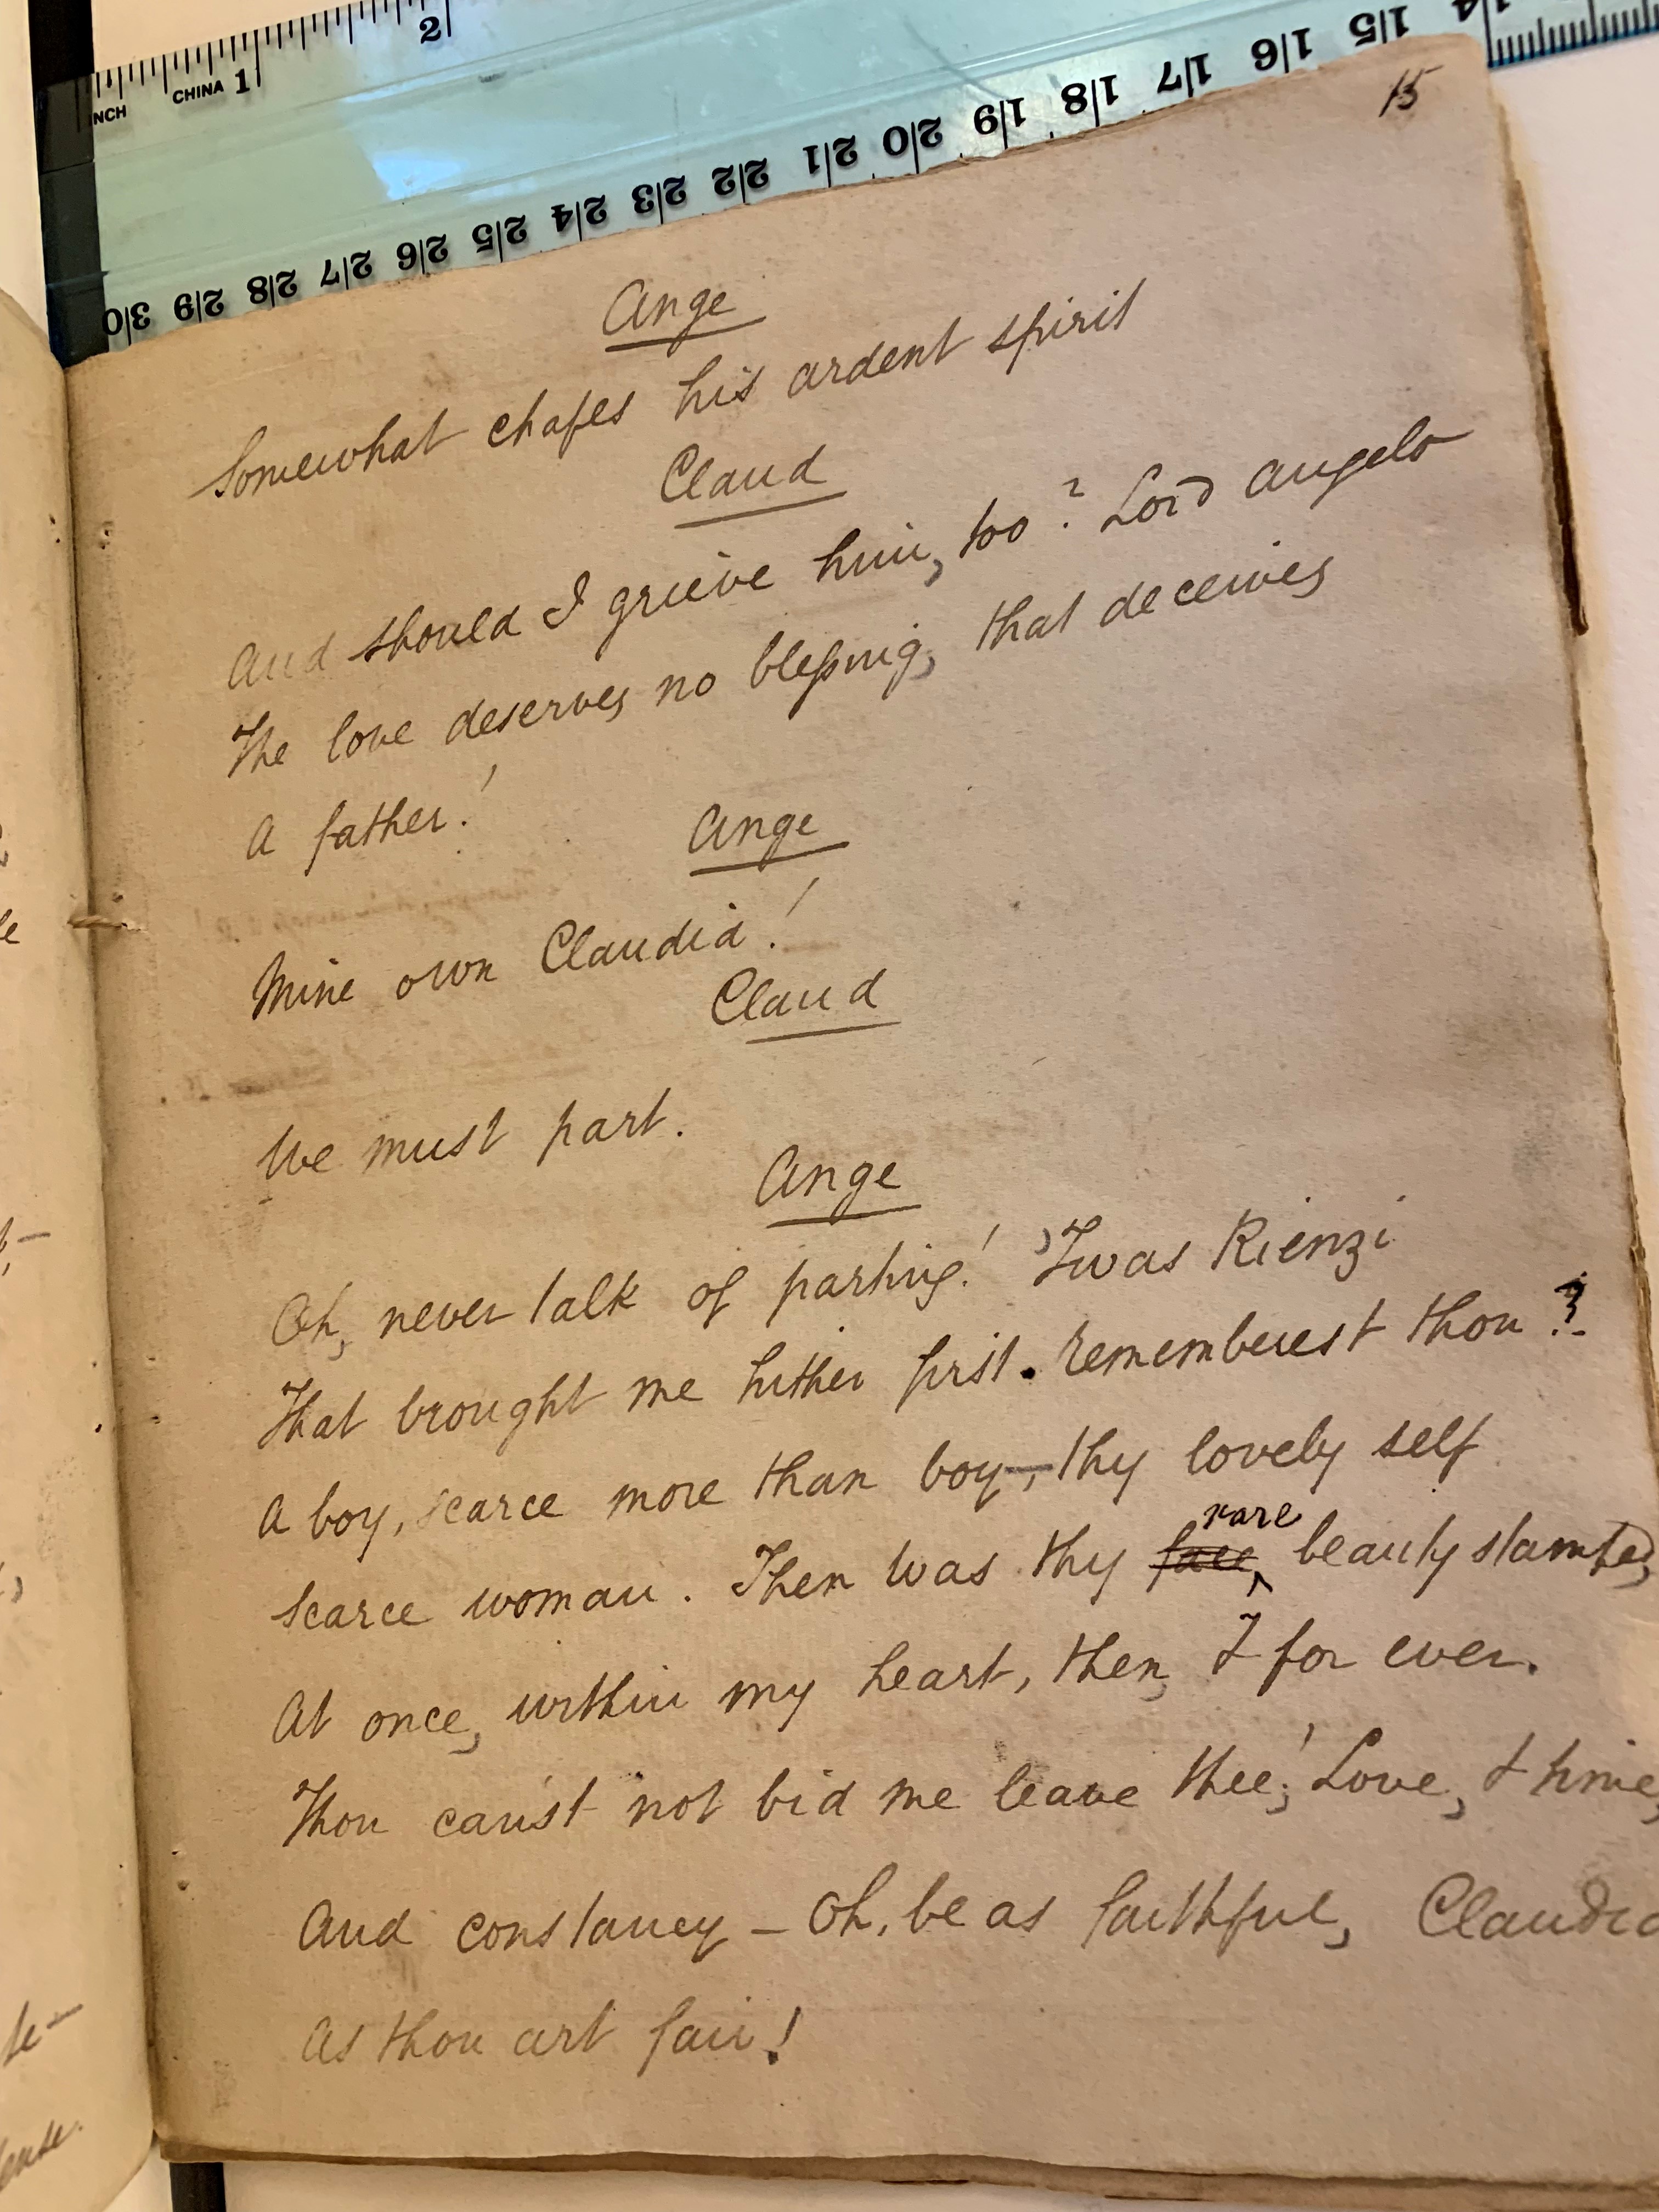 INCH CHINA 1 2
1/4 1/5 1/6 1/7 1/8 1/9 2/0 2/1 2/2 2/3 2/4 2/5 2/6 2/7 2/8 2/9 3/0
15
Ange
Somewhat chafes his ardent spirit
Claud
And should I grieve him, too? Lord Angelo
The love deserves no blessing, that deceives
A father!
Ange
Mine own Claudia!
Claud
We must part.
Ange
Oh, never talk of parting! 'Twas Rienzi
That brought me hither first. Rememberest thou?
A boy, scarce more than boy—, thy lovely self
Scarce woman. Then was thy face, rare beauty stamped,
At once, within my heart, then, & for ever.
Thou can'st not bid me leave thee;! Love, & time,
And constancy – Oh, be as faithful, Claudia
As thou art fair!